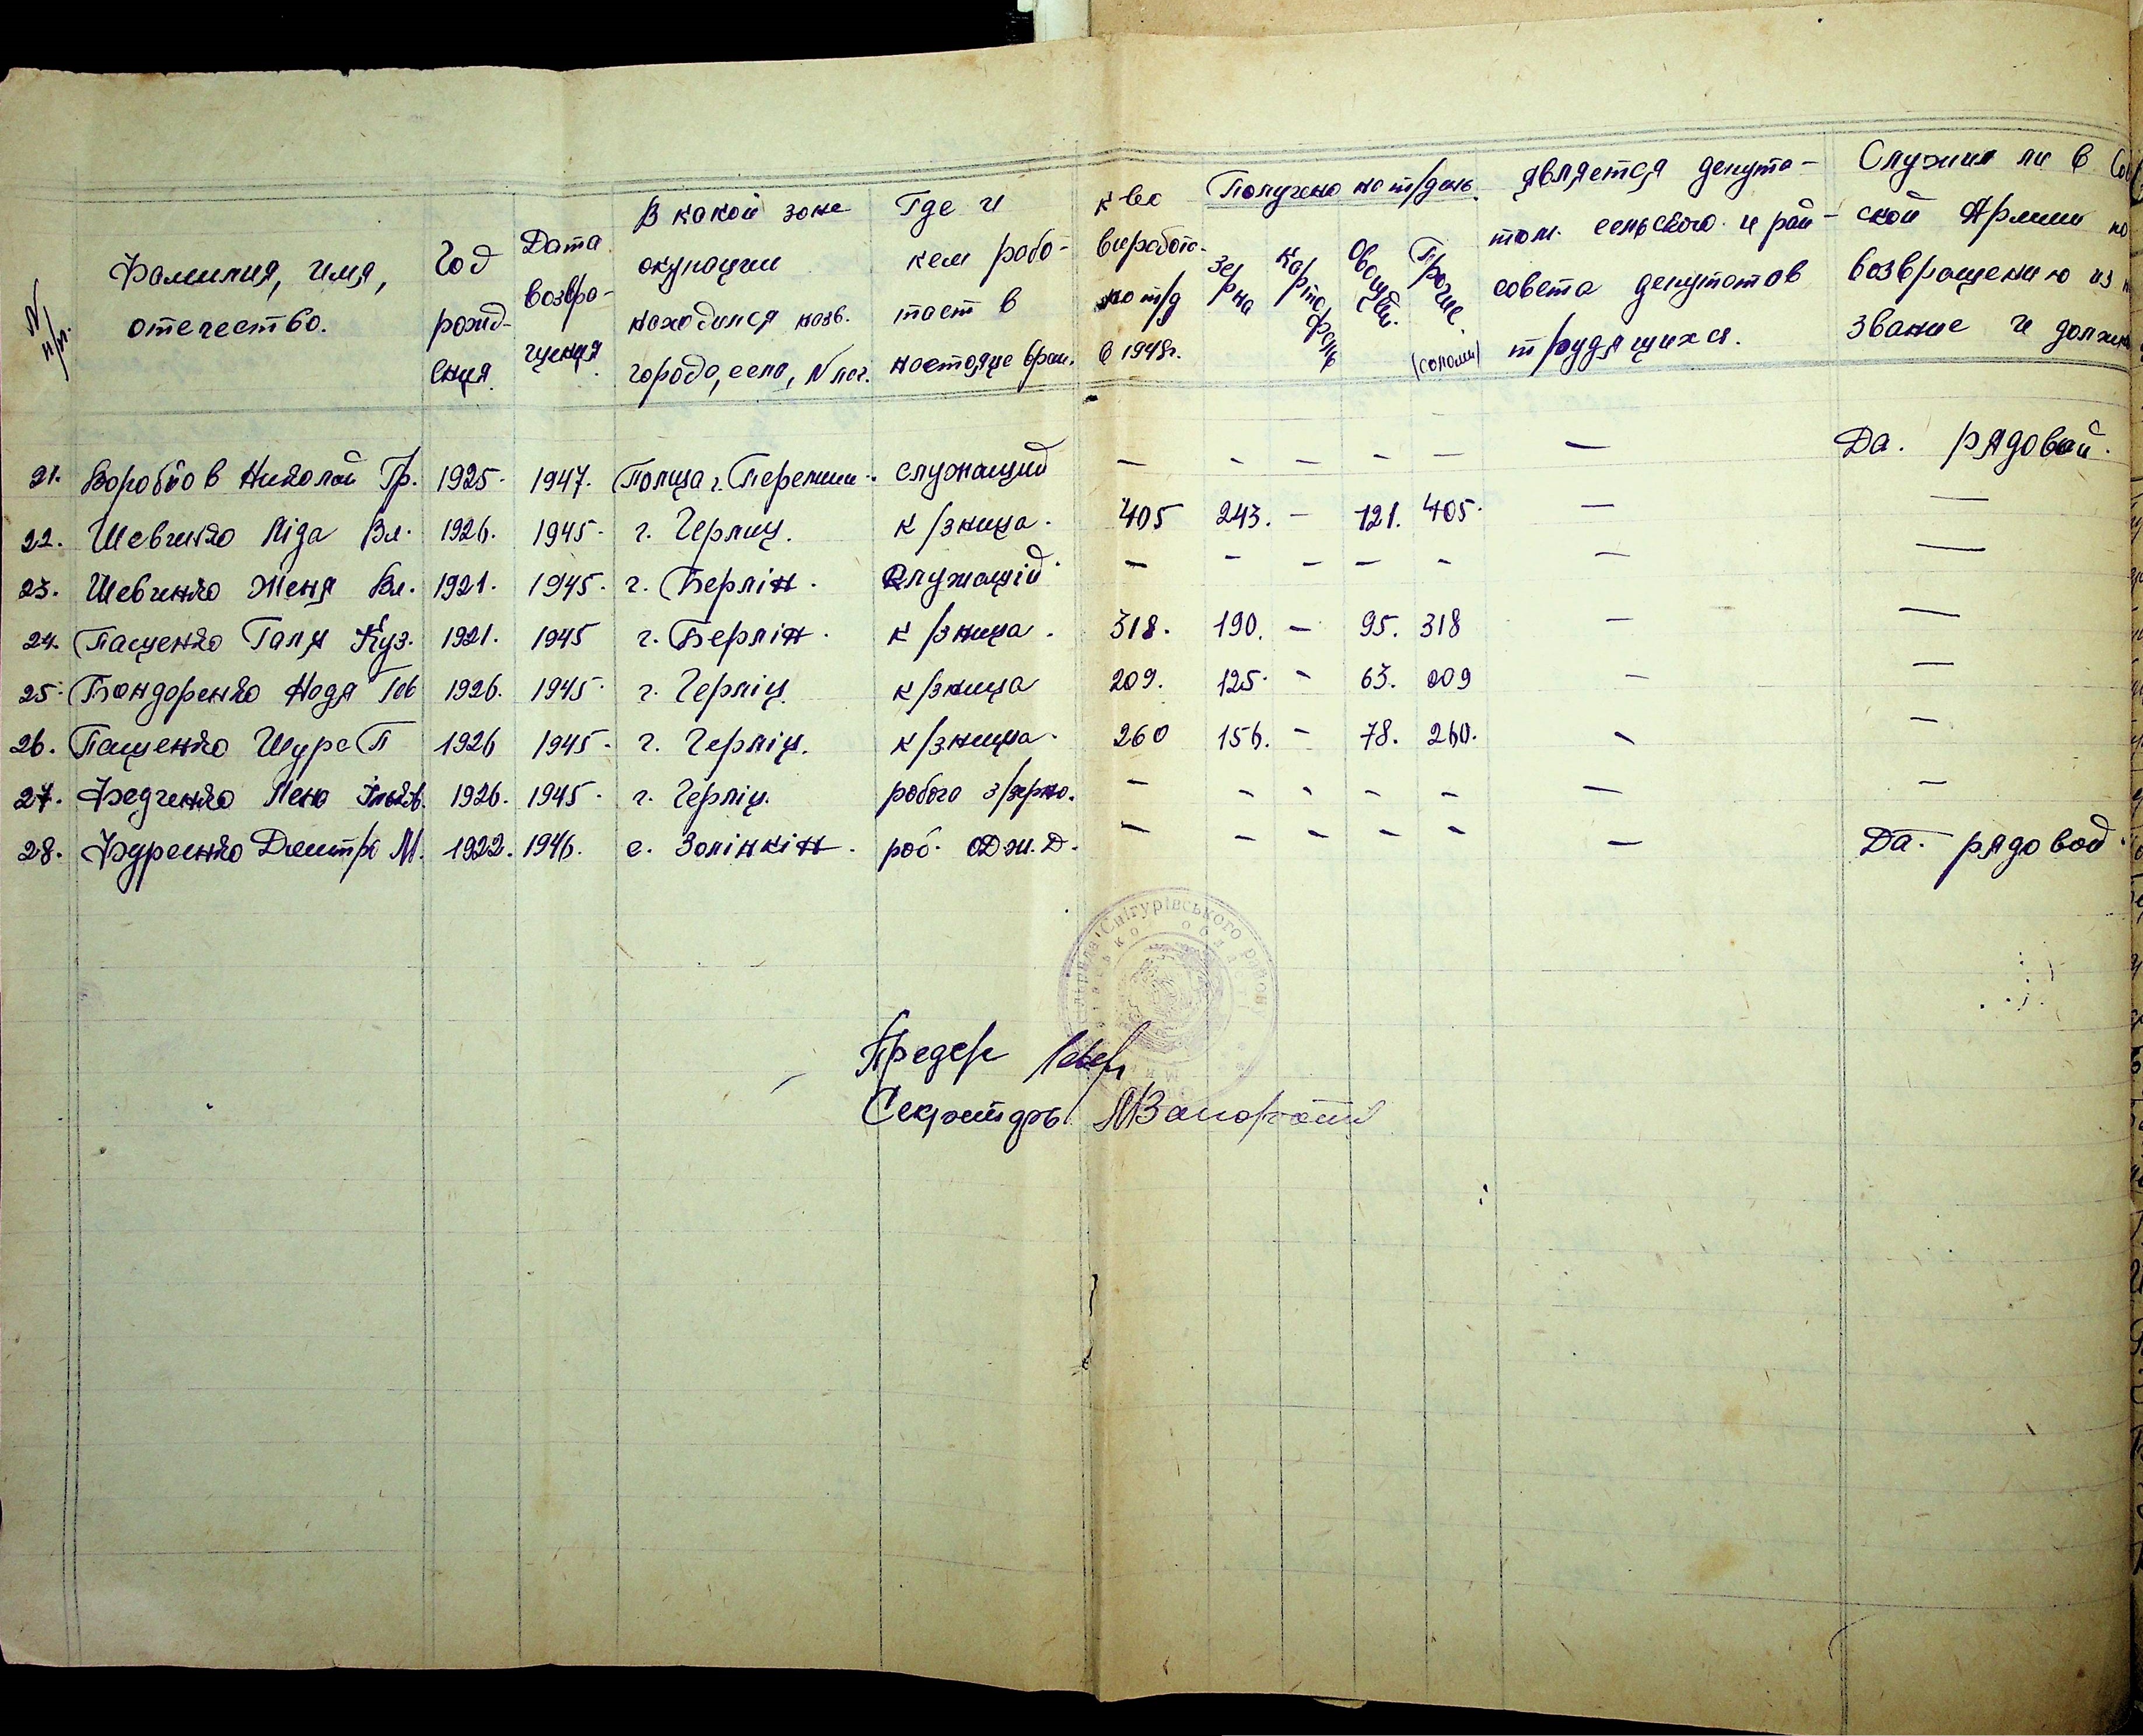 N п/п.
Фамилия, имя, отечество.
Год рожд-ения.
Дата возвра-щения
В какой зоне окупации находился назв. города, села, N лаг.
Где и кем рабо-тает в настояще врем.
к-во выработа- но т/д в 1948г.
Получено на т/день.
Зерна
Картофель
Овощей.
Прочие. (соломы)
Является депута-том сельского и рай-совета депутатов трудящихся.
Служил ли в Сов ской Армии по возвращению из звание и должн
21. Воробйов Николай Гр. 1925. 1947. Полща г. служащий — — — — — — Да. рядовой.
22. Шевченко Ліда Вл. 1926. 1945. г. Герлиц. к/зница. 405 243. — 121. 405. — —
23. Шевченко Женя Вл. 1921. 1945. г. Берлін. Служащій — — — — — — —
24. Пащенко Галя Куз. 1921. 1945 г. Берлін. к/зница. 318. 190. — 95. 318 — —
25. Бондоренко Надя 1926. 1945. г. Герліц. к/зница 209. 125. — 63. 209 — —
26. Пащенко Шура П 1926 1945. г. Герліц. к/зница. 260 156. — 78. 260. — —
27. Федченко Лена 1926. 1945. г. Герліц. робоча з/зерно. — — — — — — —
28. Дмитро М. 1922. 1946. с. Золінкін. роб. — — — — — — Да. рядовой.
Снігурівського району
області
Предс/с
Секретарь